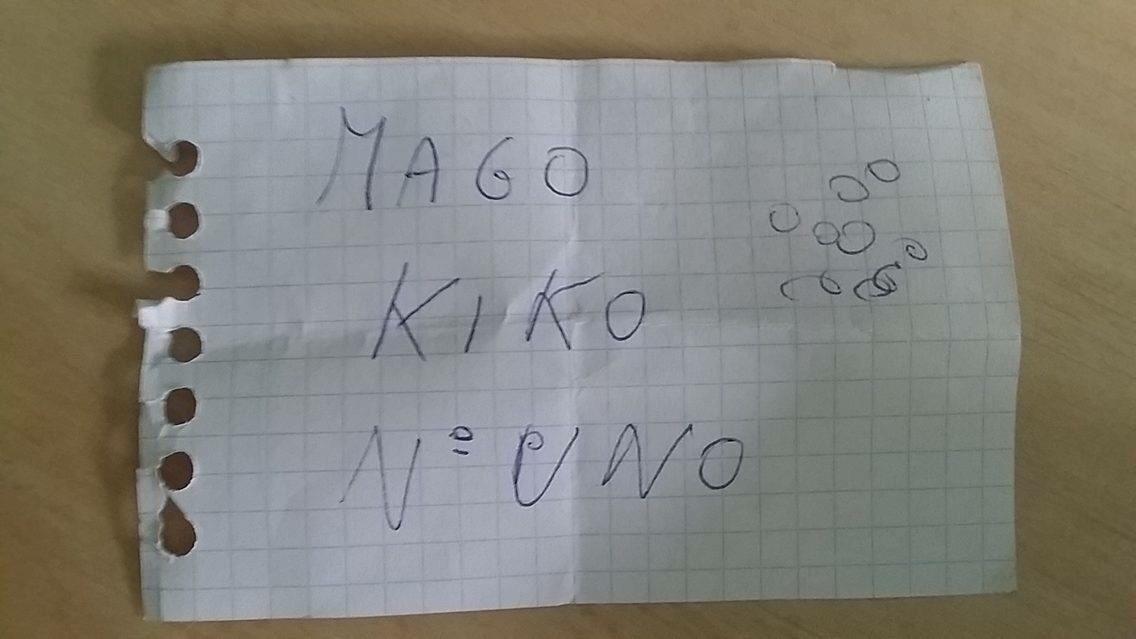 MAGO
KIKO
Nº UNO